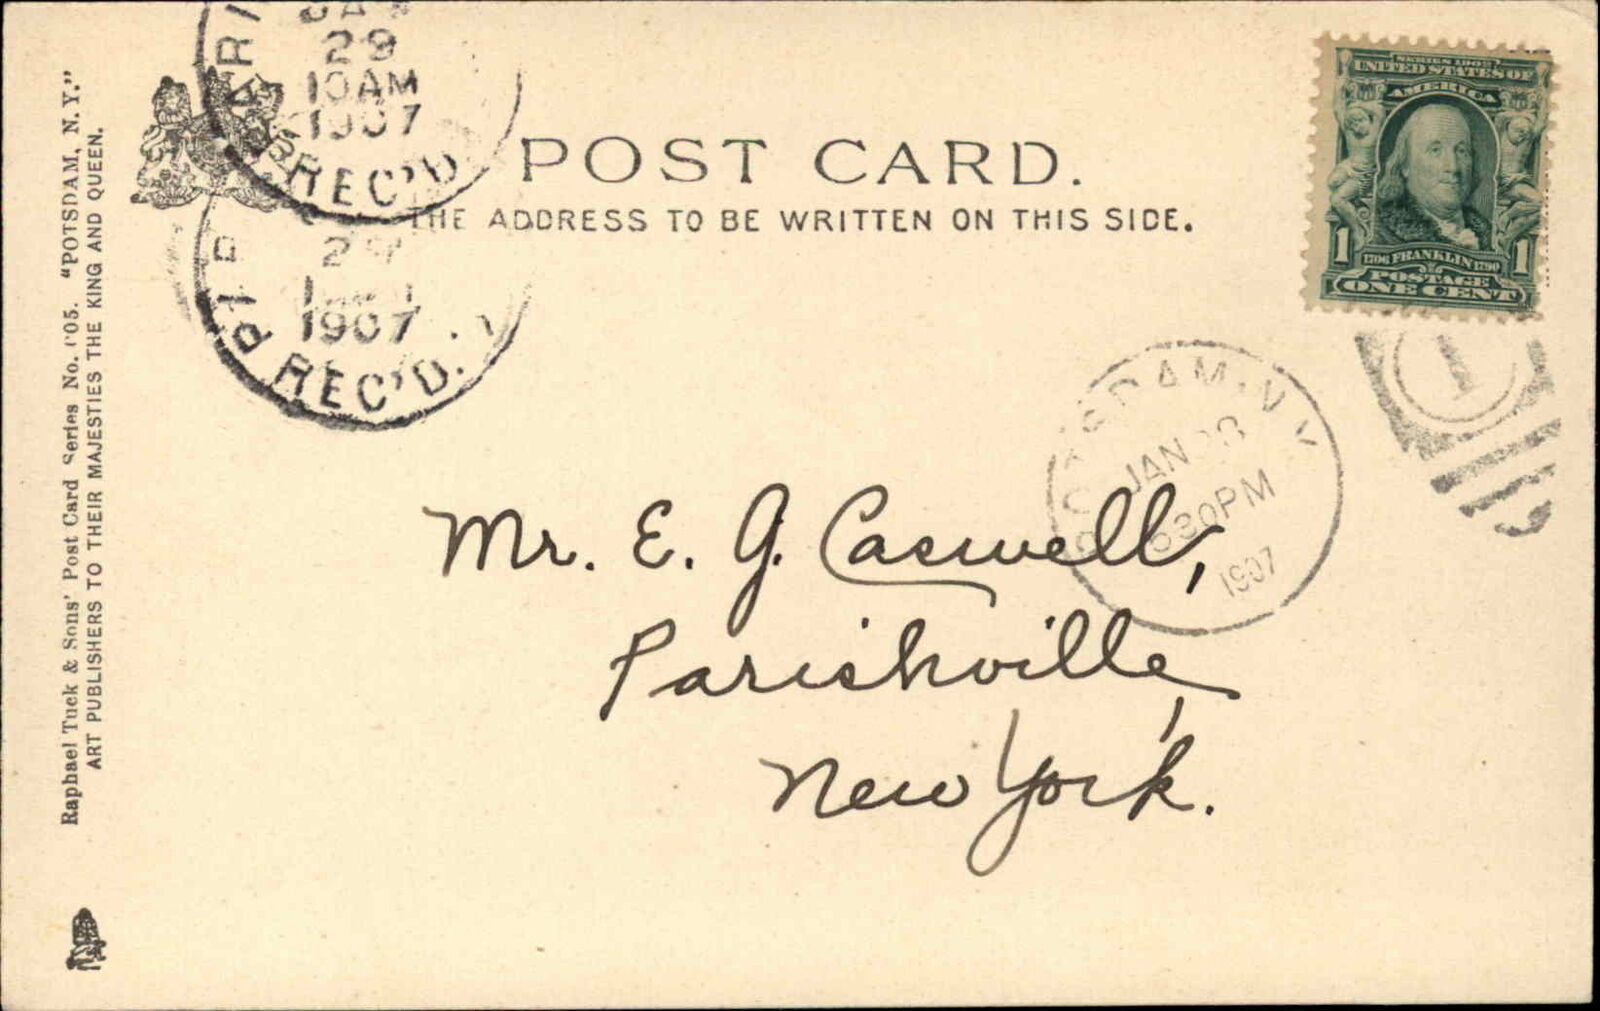 POST CARD.
THE ADDRESS TO BE WRITTEN ON THIS SIDE.
Raphael Tuck & Sons' Post Card Series No. "POTSDAM, N. Y."
ART PUBLISHERS TO THEIR MAJESTIES THE KING AND QUEEN.
29
10AM
1907
REC'D.
29
1907
REC'D.
SERIES 1902
UNITED STATES OF
AMERICA
1 1
1706 FRANKLIN 1790
POSTAGE
ONE CENT
1
POTSDAM, N.Y.
JAN 28
630PM
1907
Mr. E. G. Caswell,
Parishville,
New York.